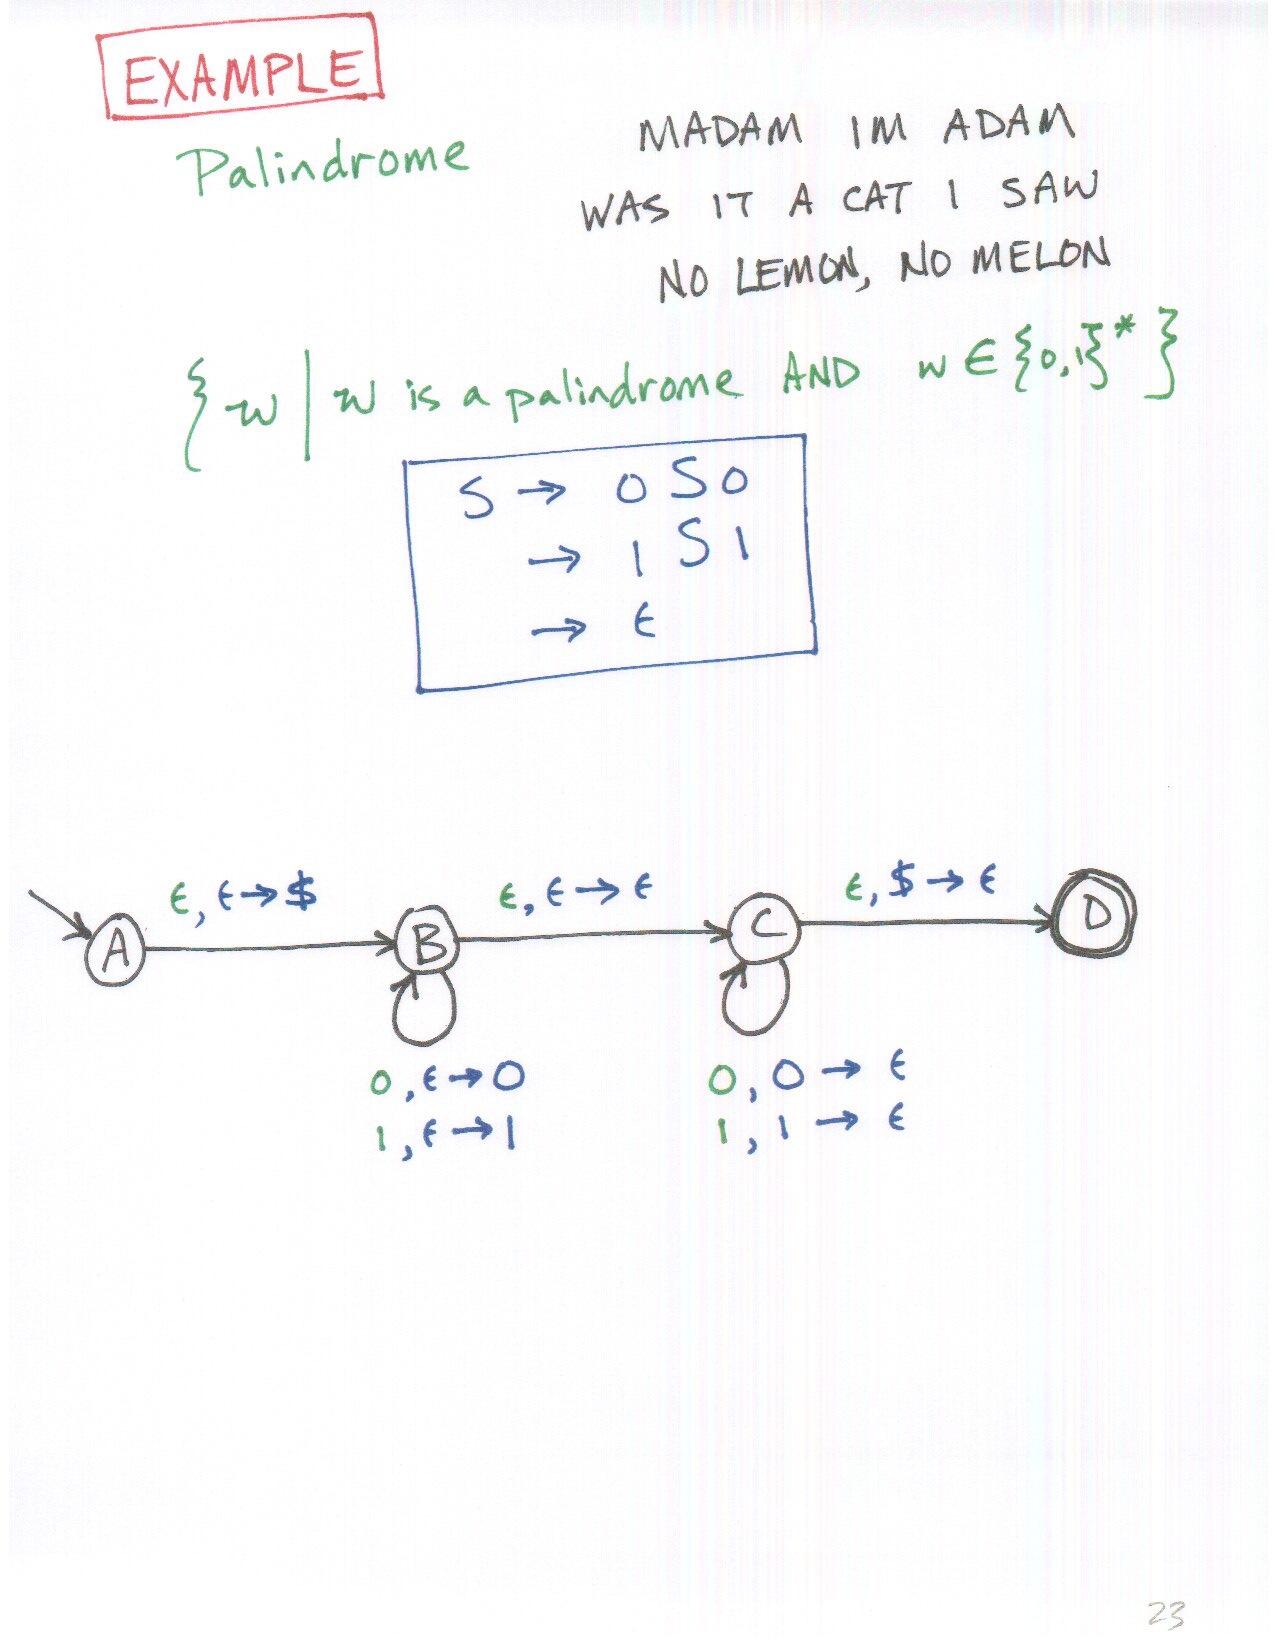 EXAMPLE
Palindrome
MADAM IM ADAM
WAS IT A CAT I SAW
NO LEMON, NO MELON
{ w | w is a palindrome AND w ∈ {0,1}* }
S → 0 S 0
→ 1 S 1
→ ε
ε, ε → $ ε, ε → ε ε, $ → ε
A B C D
0, ε → 0 0, 0 → ε
1, ε → 1 1, 1 → ε
23